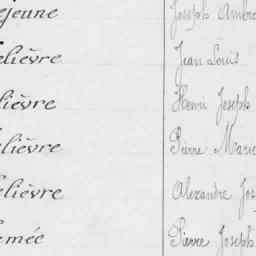 ejeune Joseph Ambro
elièvre Jean Louis
elièvre Henri Joseph
elièvre Pierre Marie
elièvre Alexandre Jos
emée Pierre Joseph